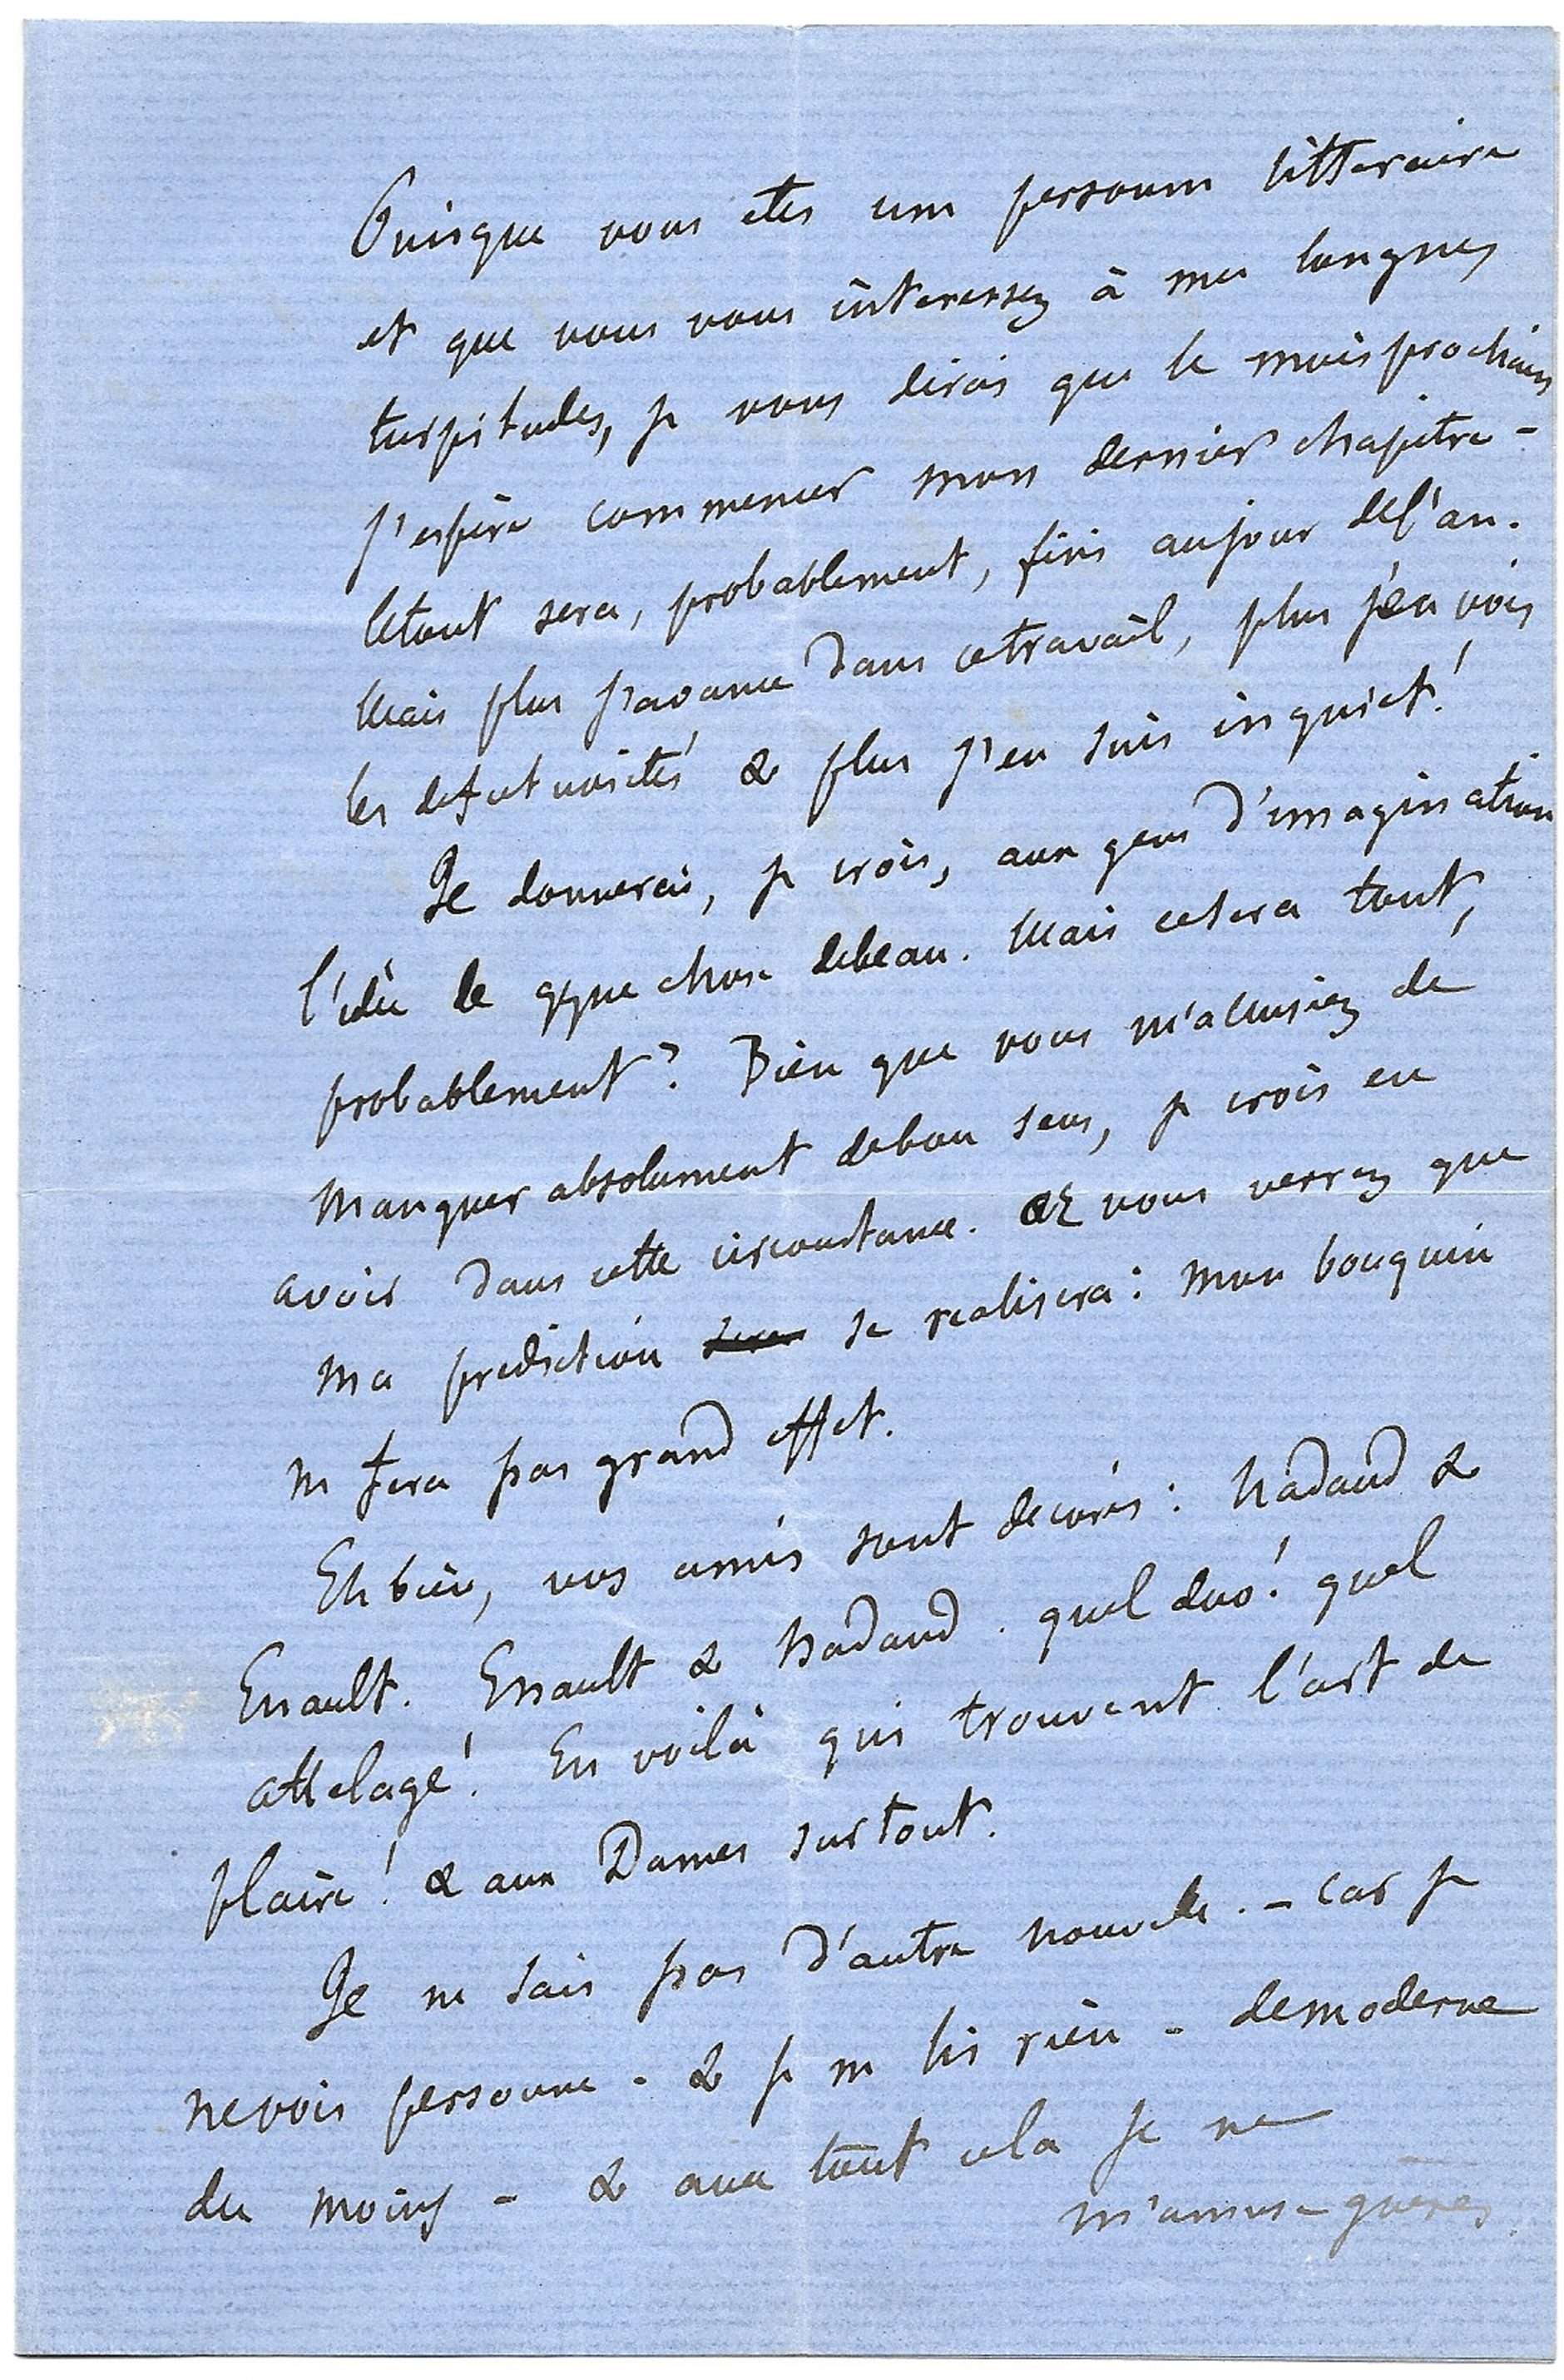 Puisque vous etes une personne litteraire
et que vous vous interessez à mes longues
turpitudes, je vous dirais que le mois prochain
j'espère commencer mon dernier chapitre -
le tout sera, probablement, fini au jour de l'an.
Mais plus j'avance dans ce travail, plus j'en vois
les defectuosités & plus j'en suis inquiet!
Je donnerai, je crois, aux gens d'imagination
l'idée de qque chose de beau. Mais ce sera tout,
probablement? Bien que vous m'accusiez de
manquer absolument de bon sens, je crois en
avoir dans cette circonstance. Et vous verrez que
ma prediction se realisera: mon bouquin
ne fera pas grand effet.
Eh bien, vos amis sont decorés: Nadaud &
Enault. Enault & Nadaud. quel duo! quel
attelage! En voilà qui trouvent l'art de
plaire! & aux Dames surtout.
Je ne sais pas d'autre nouvelle. - Car je
ne vois personne - & je ne lis rien - de moderne
du moins - & avec tout cela je ne
m'amuse guères.